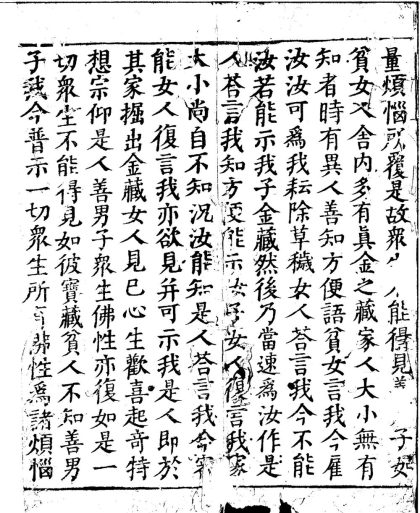 量煩惱所覆是故衆能得見子女
貧女人舍内多有眞金之藏家人大小無有
知者時有異人善知方便語貧女言我今雇
汝汝可爲我耘除草穢女人荅言我今不能
汝若能示我子金藏然後乃當速爲汝作是
人荅言我知方便能示汝子女人復言我家
大小尚自不知況汝能知是人荅言我今審
能女人復言我亦欲見并可示我是人即於
其家掘出金藏女人見已心生歡喜起竒特
想宗仰是人善男子衆生佛性亦復如是一
切衆生不能得見如彼寶藏貧人不知善男
子我今普示一切衆生所有性爲諸煩惱